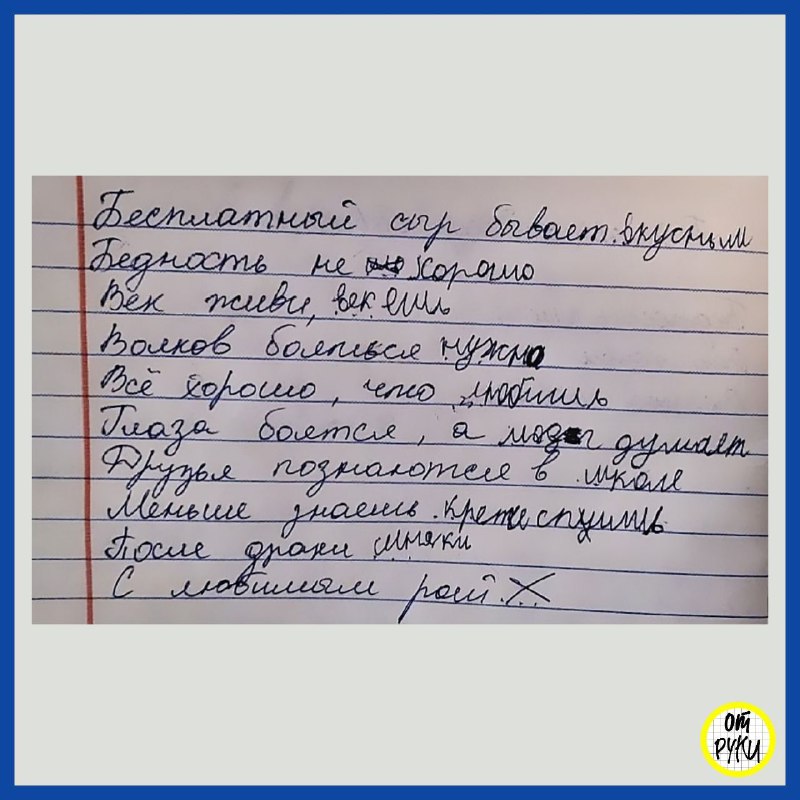 Бесплатный сыр бывает вкусным
Бедность не хорошо
Век живи, век ешь
Волков бояться нужно
Всё хорошо, что любишь
Глаза боятся, а мозг думает
Друзья познаются в школе
Меньше знаешь крепче спишь
После драки синяки
С любимым рай
от
руки